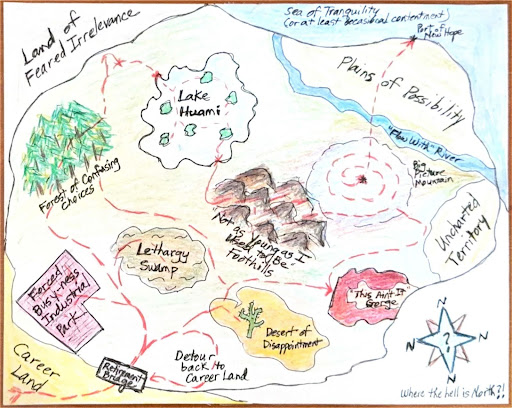 Land of
Feared Irrelevance
Sea of Tranquility
(or at least occasional contentment)
Port of
New Hope
Plains of Possibility
Lake
Huami
"Flow With" River
Big
Picture
Mountain
Forest of Confusing
Choices
Not as Young as I
Used to Be
Foothills
Uncharted
Territory
Lethargy
Swamp
Forced
Busy-ness
Industrial
Park
"This Ain't It"
Gorge
Desert of
Disappointment
Career
Land
Retirement
Bridge
Detour
back to
Career Land
N
N
?
N
N
Where the hell is North?!